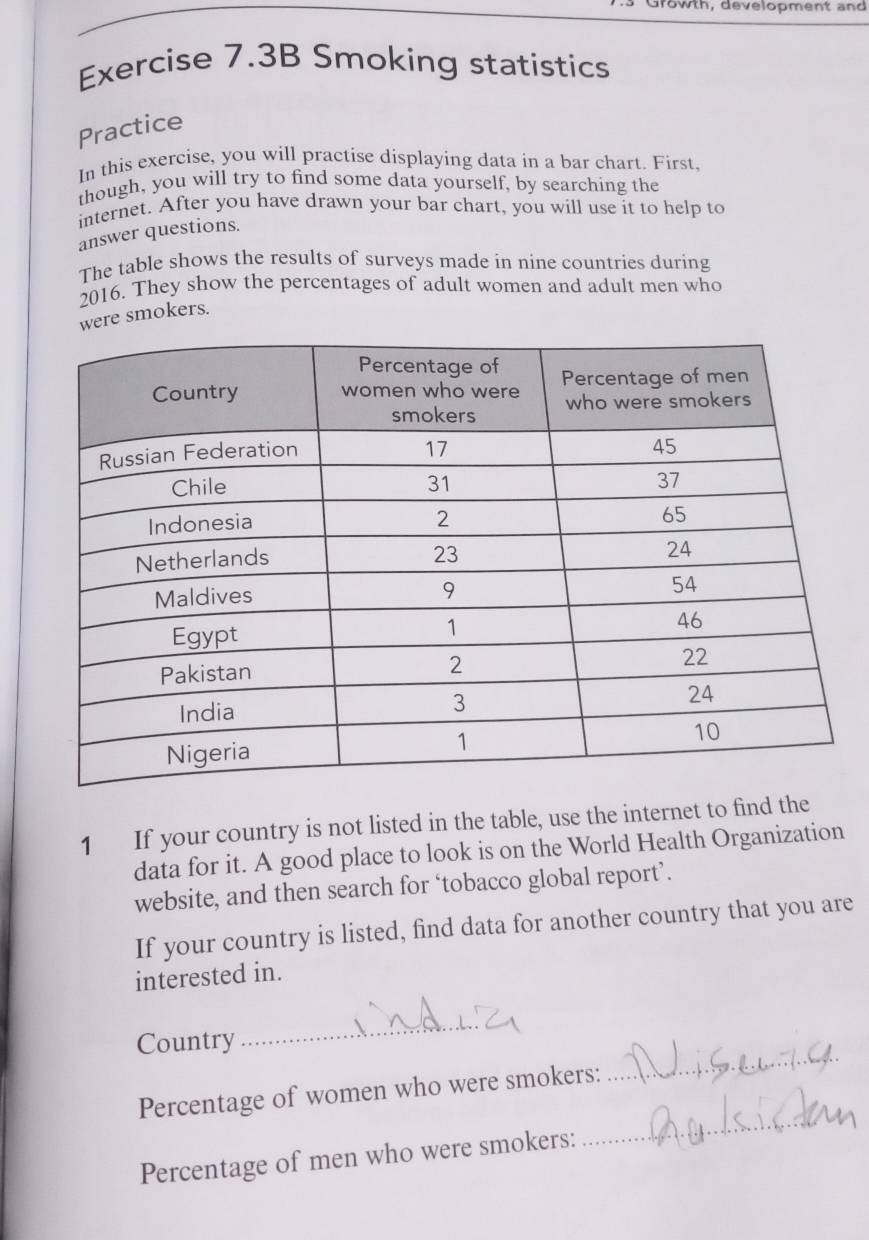 7.3 Growth, development and
Exercise 7.3B Smoking statistics
Practice
In this exercise, you will practise displaying data in a bar chart. First,
though, you will try to find some data yourself, by searching the
internet. After you have drawn your bar chart, you will use it to help to
answer questions.
The table shows the results of surveys made in nine countries during
2016. They show the percentages of adult women and adult men who
were smokers.
Country Percentage of women who were smokers Percentage of men who were smokers
Russian Federation 17 45
Chile 31 37
Indonesia 2 65
Netherlands 23 24
Maldives 9 54
Egypt 1 46
Pakistan 2 22
India 3 24
Nigeria 1 10
1 If your country is not listed in the table, use the internet to find the
data for it. A good place to look is on the World Health Organization
website, and then search for ‘tobacco global report’.
If your country is listed, find data for another country that you are
interested in.
Country india
Percentage of women who were smokers:
Percentage of men who were smokers: